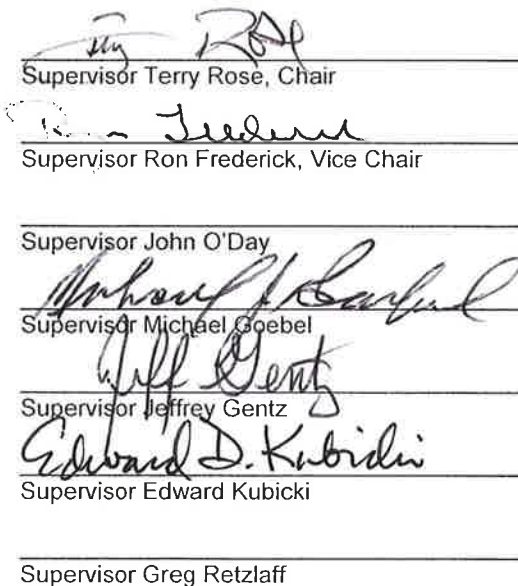 Terry Rose
Supervisor Terry Rose, Chair
Ron Frederick
Supervisor Ron Frederick, Vice Chair
Supervisor John O'Day
Michael J. Goebel
Supervisor Michael Goebel
Jeff Gentz
Supervisor Jeffrey Gentz
Edward D. Kubicki
Supervisor Edward Kubicki
Supervisor Greg Retzlaff